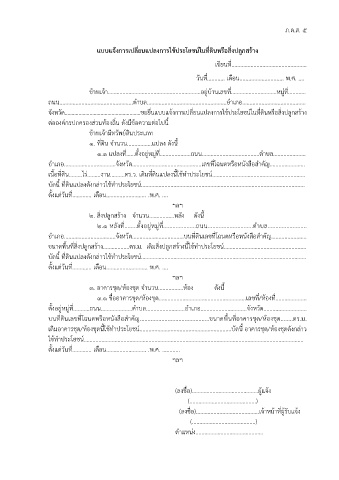 ภ.ด.ส. ๕
แบบแจ้งการเปลี่ยนแปลงการใช้ประโยชน์ในที่ดินหรือสิ่งปลูกสร้าง
เขียนที่............................................
วันที่.......... เดือน.......................... พ.ศ. ....
ข้าพเจ้า......................................................อยู่บ้านเลขที่..........................หมู่ที่..........
ถนน...........................................ตำบล..............................................อำเภอ....................................
จังหวัด...........................................ขอยื่นแบบแจ้งการเปลี่ยนแปลงการใช้ประโยชน์ในที่ดินหรือสิ่งปลูกสร้าง
ต่อองค์กรปกครองส่วนท้องถิ่น ดังมีข้อความต่อไปนี้
ข้าพเจ้ามีทรัพย์สินประเภท
๑. ที่ดิน จำนวน..............แปลง ดังนี้
๑.๑ แปลงที่.....ตั้งอยู่หมู่ที่..................ถนน..................................ตำบล...................
อำเภอ..............................จังหวัด.........................................เลขที่โฉนดหรือหนังสือสำคัญ....................
เนื้อที่ดิน........ไร่........งาน........ตร.ว. เดิมที่ดินแปลงนี้ใช้ทำประโยชน์......................................................
บัดนี้ ที่ดินแปลงดังกล่าวใช้ทำประโยชน์................................................................................................
ตั้งแต่วันที่........... เดือน........................ พ.ศ. ....
ฯลฯ
๒. สิ่งปลูกสร้าง จำนวน..............หลัง ดังนี้
๒.๑ หลังที่.......ตั้งอยู่หมู่ที่...................ถนน..........................ตำบล......................
อำเภอ..............................จังหวัด..............................บนที่ดินเลขที่โฉนดหรือหนังสือสำคัญ....................
ขนาดพื้นที่สิ่งปลูกสร้าง...............ตร.ม. เดิมสิ่งปลูกสร้างนี้ใช้ทำประโยชน์................................................
บัดนี้ ที่ดินแปลงดังกล่าวใช้ทำประโยชน์................................................................................................
ตั้งแต่วันที่........... เดือน........................ พ.ศ. ....
ฯลฯ
๓. อาคารชุด/ห้องชุด จำนวน..............ห้อง ดังนี้
๓.๑ ชื่ออาคารชุด/ห้องชุด..................................................เลขที่/ห้องที่..................
ตั้งอยู่หมู่ที่.........ถนน.........................ตำบล.......................อำเภอ...........................จังหวัด........................
บนที่ดินเลขที่โฉนดหรือหนังสือสำคัญ........................................ขนาดพื้นที่อาคารชุด/ห้องชุด.........ตร.ม.
เดิมอาคารชุด/ห้องชุดนี้ใช้ทำประโยชน์......................................................บัดนี้ อาคารชุด/ห้องชุดดังกล่าว
ใช้ทำประโยชน์..................................................................................................................................
ตั้งแต่วันที่........... เดือน........................ พ.ศ. ..........
ฯลฯ
(ลงชื่อ)........................................ผู้แจ้ง
(........................................)
(ลงชื่อ)........................................เจ้าหน้าที่ผู้รับแจ้ง
(........................................)
ตำแหน่ง........................................